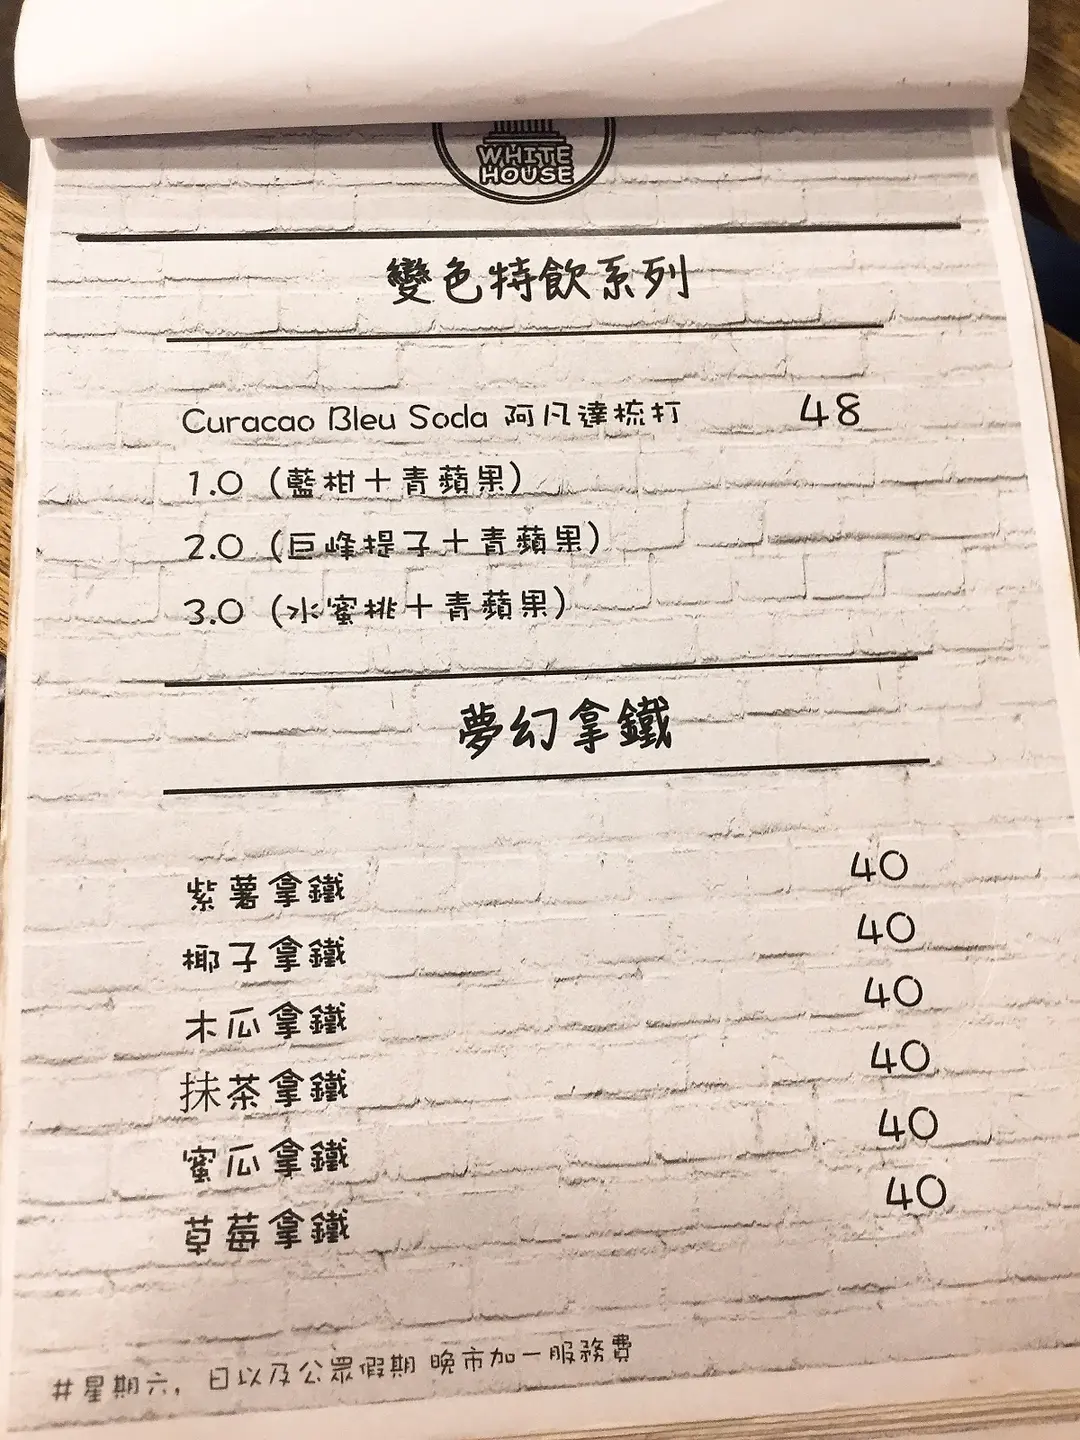 WHITE
HOUSE
變色特飲系列
Curacao Bleu Soda 阿凡達梳打 48
1.0 (藍柑+青蘋果)
2.0 (巨峰提子+青蘋果)
3.0 (水蜜桃+青蘋果)
夢幻拿鐵
紫薯拿鐵 40
椰子拿鐵 40
木瓜拿鐵 40
抹茶拿鐵 40
蜜瓜拿鐵 40
草莓拿鐵 40
#星期六，日以及公眾假期 晚市加一服務費